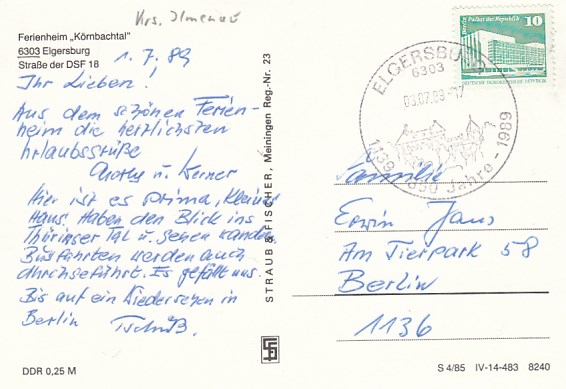 Krs. Ilmenau
Ferienheim „Körnbachtal"
6303 Elgersburg
Straße der DSF 18
1.7.89
Ihr Lieben!
Aus dem schönen Ferien-
heim die herzlichsten
Urlaubsgrüße
u. Werner
Hier ist es prima, kleines
Haus. Haben den Blick ins
Thüringer Tal u. gehen wandern
Busfahrten werden auch
durchgeführt. Es gefällt uns.
Bis auf ein Wiedersehen in
Berlin Tschüß.
DDR 0,25 M
STRAUB & FISCHER, Meiningen Reg.-Nr. 23
Berlin Palast der Republik 10
DEUTSCHE DEMOKRATISCHE REPUBLIK
ELGERSBURG
6303
1139 - 850 Jahre - 1989
Familie
Erwin Jans
Am Tierpark 58
Berlin
1136
S 4/85 IV-14-483 8240